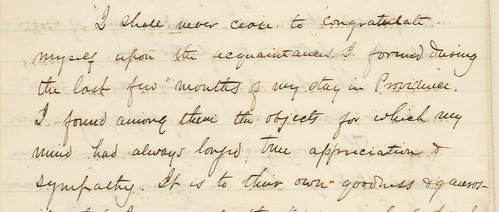 I shall never cease to congratulate
myself upon the acquaintances I formed during
the last few months of my stay in Providence.
I found among them the objects for which my
mind had always longed, true appreciation &
sympathy. It is to their own goodness & generos-